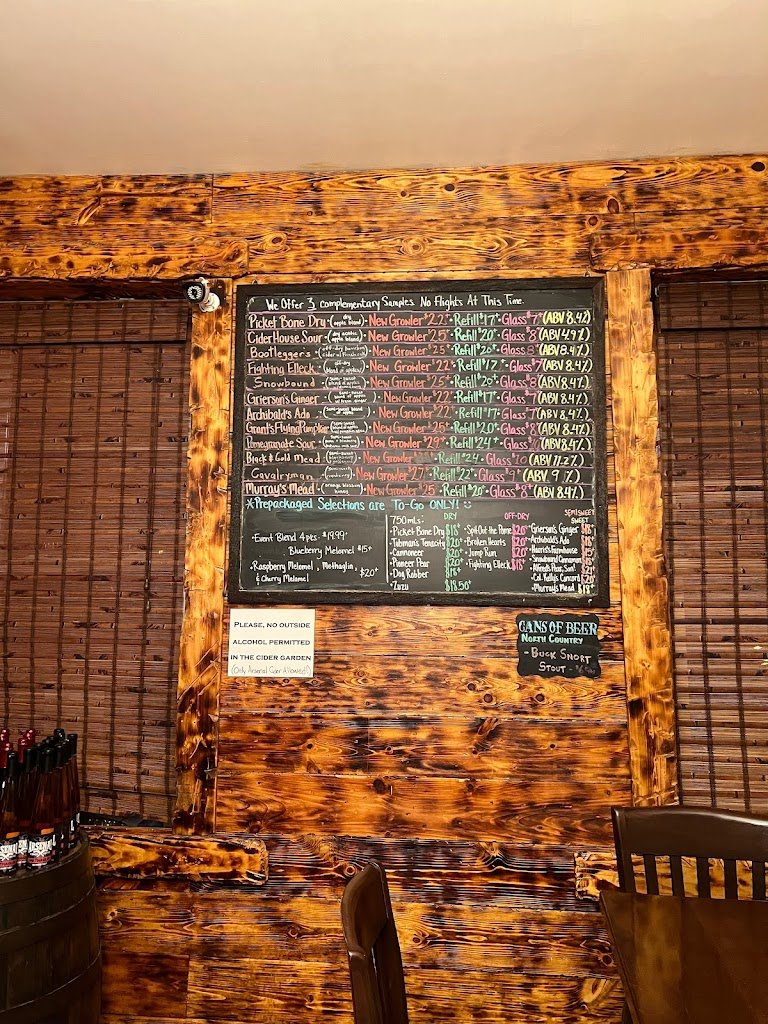 We Offer 3 complementary Samples. No Flights At This Time.
Picket Bone Dry (dry apple blend) New Growler $22+ Refill $17+ Glass $7+ (ABV 8.4%)
Cider House Sour New Growler $25 Refill $20+ Glass $8 (ABV 4.9%)
Bootleggers New Growler $25 Refill $20+ Glass $8 (ABV 8.4%)
Fighting Elleck (off-dry blend of apples) New Growler $22+ Refill $17+ Glass $7 (ABV 8.4%)
Snowbound New Growler $25+ Refill $20+ Glass $8 (ABV 8.4%)
Grierson's Ginger New Growler $22+ Refill $17+ Glass $7 (ABV 8.4%)
Archibald's Ado New Growler $22+ Refill $17+ Glass $7 (ABV 8.4%)
Grant's Flying Pumpkin New Growler $25+ Refill $20+ Glass $8 (ABV 8.4%)
Pomegranate Sour New Growler $29+ Refill $24+ Glass (ABV 8.4%)
Black & Gold Mead New Growler Refill $24 Glass $10 (ABV 11.2%)
Cavalryman New Growler $27+ Refill $22+ Glass $9+ (ABV 9%)
Murray's Mead (orange blossom honey) New Growler $25 Refill $20+ Glass $8+ (ABV 8.4%)
*Prepackaged Selections are To-Go ONLY!
-Event Blend 4pcs. $19.99+
Blueberry Melomel $15+
-Raspberry Melomel, Metheglin,
& Cherry Melomel $20+
750mls: DRY
-Picket Bone Dry $18+
-Tubman's Tenacity $20+
-Cannoneer $20+
-Pioneer Pear $20+
-Dog Robber $18+
-Zuzu $18.50+
OFF-DRY
-Spit Out the Bone $20+
-Broken Hearts $20+
-Jump Run $20+
-Fighting Elleck $18+
SEMISWEET
SWEET
-Grierson's Ginger $18+
-Archibald's Ado $18+
-Harris's Farmhouse
-Snowbound Cinnamon
-Alfred's Pear, Sun!
-Col. Kelly's Concord
-Murray's Mead
PLEASE, NO OUTSIDE
ALCOHOL PERMITTED
IN THE CIDER GARDEN
(Only Arsenal Cider Allowed!)
CANS OF BEER
NORTH COUNTRY
- BUCK SNORT
STOUT -
ARSENAL